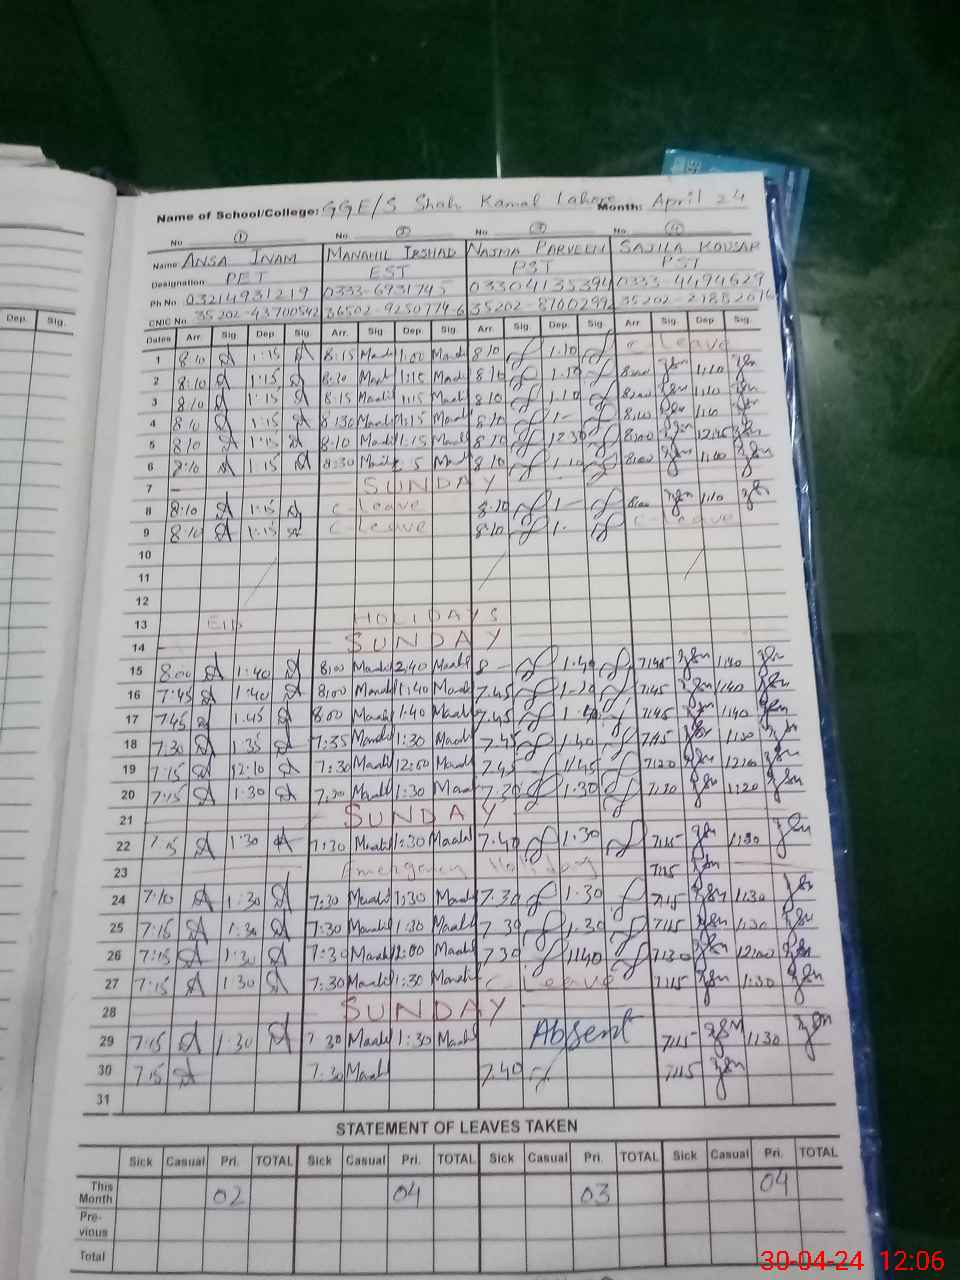 Dep. Sig.
Name of School/College: GGE/S Shah Kamal Lahore Month: April 24
No ① No. ② No. ③ No. ④
Name: ANSA INAM MANAHIL IRSHAD NAJMA PARVEEN SAJILA KOUSAR
Designation PET EST PST PST
Ph No 03214931219 0333-6931745 03304135394 0333-4494629
CNIC No 35202-43700542 36502-9250774-6 35202-8700299 35202-
Dates Arr. Sig. Dep. Sig. Arr. Sig Dep. Sig. Arr. Sig. Dep. Sig. Arr Sig. Dep Sig.
1 8:10 1:15 8:15 1:00 8:10 1:10 C-Leave
2 8:10 1:15 8:20 1:15 8:10 1:10 8:00 1:10
3 8:10 1:15 8:15 1:15 8:10 1:10 8:00 1:10
4 8:10 1:15 8:30 1:15 8:10 1- 8:00 1:10
5 8:10 1:15 8:10 1:15 8:10 12:30 8:00 12:45
6 8:10 1:15 8:30 8:10 1:10 8:00 1:00
7 SUNDAY
8 8:10 1:15 C-Leave 8:10 1- 8:00 1:10
9 8:10 1:15 C-Leave 8:10 1- C-Leave
10
11
12
13 EID HOLIDAYS
14 SUNDAY
15 8:00 1:40 8:00 Maahi 2:40 Maahi 8- 1:40 7:45 1:40
16 7:45 1:40 8:00 1:40 7.45 1-20 7:45 1:40
17 7:45 1:45 8:00 Maahi 1:40 Maahi 7.45 1:40 7:45 1:40
18 7:30 1:35 7:35 1:30 Maahi 7.45 1:40 7:45 1:30
19 7:15 12:10 7:30 Maahi 12:00 Maahi 7.45 11:45 7:20
20 7:15 1:30 7:30 Maahi 1:30 Maahi 7.30 1:30 7:20 1:20
21 SUNDAY
22 7:15 1:30 7:30 Maahi 1:30 Maahi 7.40 1:30 7:15 1:30
23 Emergency Holiday 7:15
24 7:10 1:30 7:30 Maahi 1:30 Maahi 7.30 1:30 7:15 1:30
25 7:15 1:30 7:30 Maahi 1:30 Maahi 7.30 1:30 7:15 1:30
26 7:15 1:30 7:30 Maahi 12:00 Maahi 7.30 11:40 7:30 12:00
27 7:15 1:30 7:30 Maahi 1:30 Maahi C-Leave 7:15 1:30
28 SUNDAY
29 7:15 1:30 7:30 Maahi 1:30 Maahi Absent 7:15 1:30
30 7:15 7:30 Maahi 7.40 7:15
31
STATEMENT OF LEAVES TAKEN
Sick Casual Pri. TOTAL Sick Casual Pri. TOTAL Sick Casual Pri. TOTAL Sick Casual Pri. TOTAL
This Month 02 04 03 04
Pre-vious
Total
30-04-24 12:06